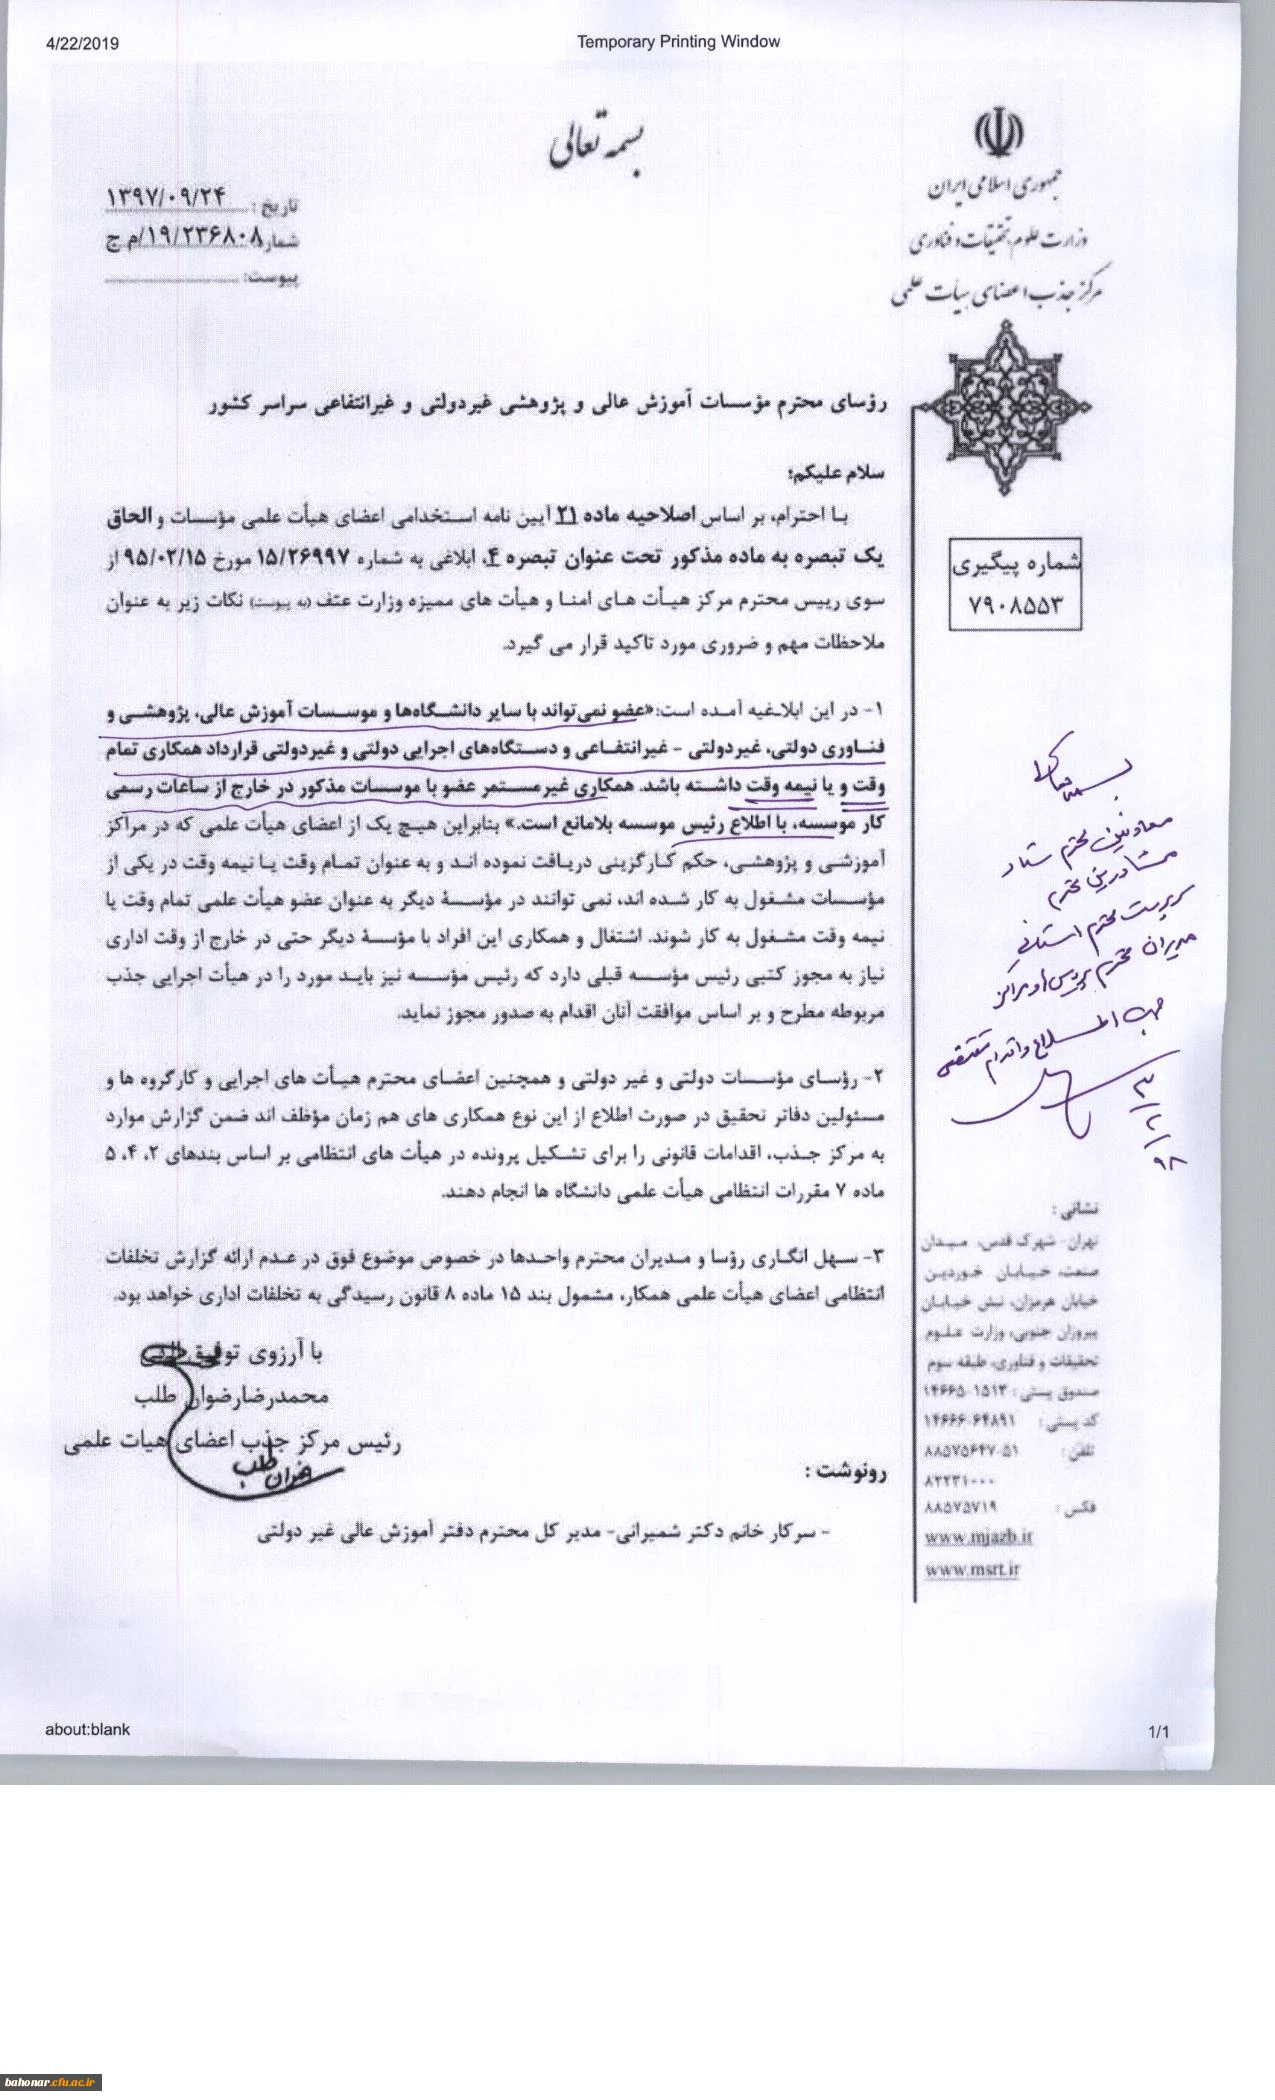 4/22/2019
Temporary Printing Window
بسمه تعالی
جمهوری اسلامی ایران
وزارت علوم، تحقیقات و فناوری
مرکز جذب اعضای هیأت علمی
تاریخ: ۱۳۹۷/۰۹/۲۴
شماره ۱۹/۲۳۶۸۰۸/م ج
پیوست:
رؤسای محترم مؤسسات آموزش عالی و پژوهشی غیردولتی و غیرانتفاعی سراسر کشور
شماره پیگیری
۷۹۰۸۵۵۳
سلام علیکم؛
با احترام، بر اساس اصلاحیه ماده ۲۱ آیین نامه استخدامی اعضای هیأت علمی مؤسسات و الحاق
یک تبصره به ماده مذکور تحت عنوان تبصره ۴، ابلاغی به شماره ۱۵/۲۶۹۹۷ مورخ ۹۵/۰۲/۱۵ از
سوی رییس محترم مرکز هیأت های امنا و هیأت های ممیزه وزارت عتف (به پیوست) نکات زیر به عنوان
ملاحظات مهم و ضروری مورد تاکید قرار می گیرد.
۱- در این ابلاغیه آمده است:«عضو نمی‌تواند با سایر دانشگاه‌ها و موسسات آموزش عالی، پژوهشی و
فناوری دولتی، غیردولتی - غیرانتفاعی و دستگاه‌های اجرایی دولتی و غیردولتی قرارداد همکاری تمام
وقت و یا نیمه وقت داشته باشد. همکاری غیرمستمر عضو با موسسات مذکور در خارج از ساعات رسمی
کار موسسه، با اطلاع رئیس موسسه بلامانع است.» بنابراین هیچ یک از اعضای هیأت علمی که در مراکز
آموزشی و پژوهشی، حکم کارگزینی دریافت نموده اند و به عنوان تمام وقت یا نیمه وقت در یکی از
مؤسسات مشغول به کار شده اند، نمی توانند در مؤسسهٔ دیگر به عنوان عضو هیأت علمی تمام وقت یا
نیمه وقت مشغول به کار شوند. اشتغال و همکاری این افراد با مؤسسهٔ دیگر حتی در خارج از وقت اداری
نیاز به مجوز کتبی رئیس مؤسسه قبلی دارد که رئیس مؤسسه نیز باید مورد را در هیأت اجرایی جذب
مربوطه مطرح و بر اساس موافقت آنان اقدام به صدور مجوز نماید.
۲- رؤسای مؤسسات دولتی و غیر دولتی و همچنین اعضای محترم هیأت های اجرایی و کارگروه ها و
مسئولین دفاتر تحقیق در صورت اطلاع از این نوع همکاری های هم زمان مؤظف اند ضمن گزارش موارد
به مرکز جذب، اقدامات قانونی را برای تشکیل پرونده در هیأت های انتظامی بر اساس بندهای ۲، ۴، ۵
ماده ۷ مقررات انتظامی هیأت علمی دانشگاه ها انجام دهند.
۳- سهل انگاری رؤسا و مدیران محترم واحدها در خصوص موضوع فوق در عدم ارائه گزارش تخلفات
انتظامی اعضای هیأت علمی همکار، مشمول بند ۱۵ ماده ۸ قانون رسیدگی به تخلفات اداری خواهد بود.
با آرزوی توفیق الهی
محمدرضا رضوان طلب
رئیس مرکز جذب اعضای هیات علمی
رونوشت :
- سرکار خانم دکتر شمیرانی- مدیر کل محترم دفتر آموزش عالی غیر دولتی
معاونین محترم ستاد
مشاورین محترم
سرپرست محترم استانی
مدیران محترم پردیس و مراکز
جهت اطلاع و اقدام مقتضی
۹۸/۲/۳
نشانی :
تهران- شهرک قدس، میدان
صنعت، خیابان خوردین
خیابان هرمزان، نبش خیابان
پیروزان جنوبی، وزارت علوم
تحقیقات و فناوری، طبقه سوم
صندوق پستی : ۱۵۱۳-۱۴۶۶۵
کد پستی : ۱۴۶۶۶-۶۴۸۹۱
تلفن: ۸۸۵۷۵۶۴۷-۵۱
۸۲۲۳۱۰۰۰
فکس : ۸۸۵۷۵۷۱۹
www.mjazb.ir
www.msrt.ir
about:blank
1/1
bahonar.cfu.ac.ir